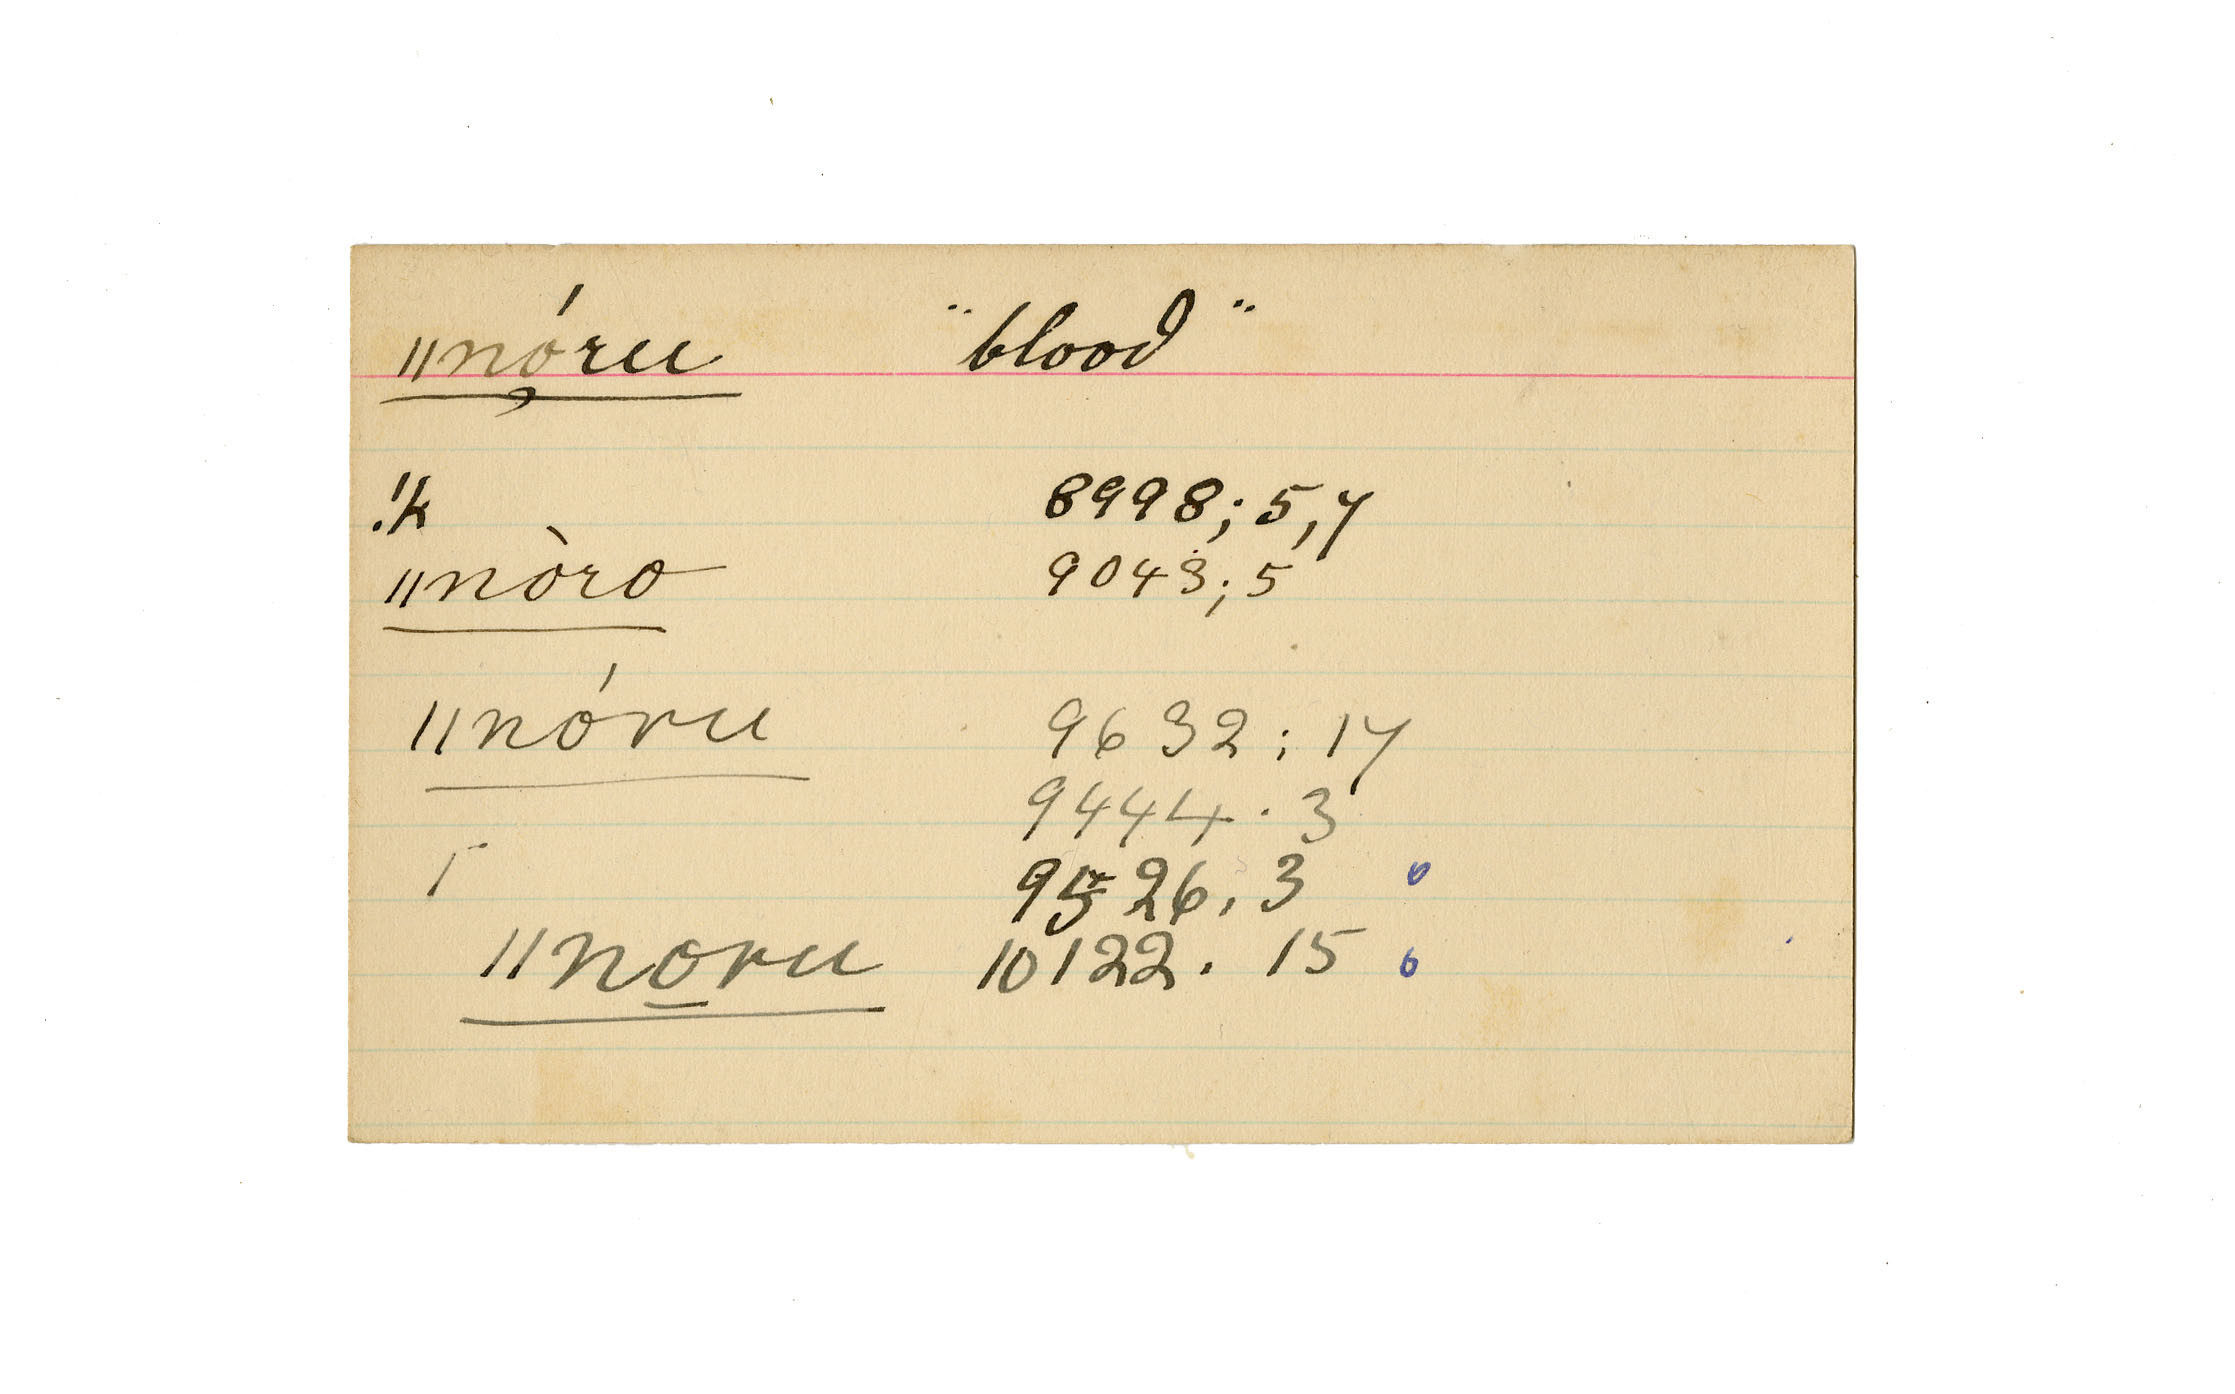 ǁnóru "blood"
!k 8998; 5, 7
ǁnòro 9043; 5
ǁnóru 9632; 17
9444. 3
9526. 3
ǁnoru 10122. 15